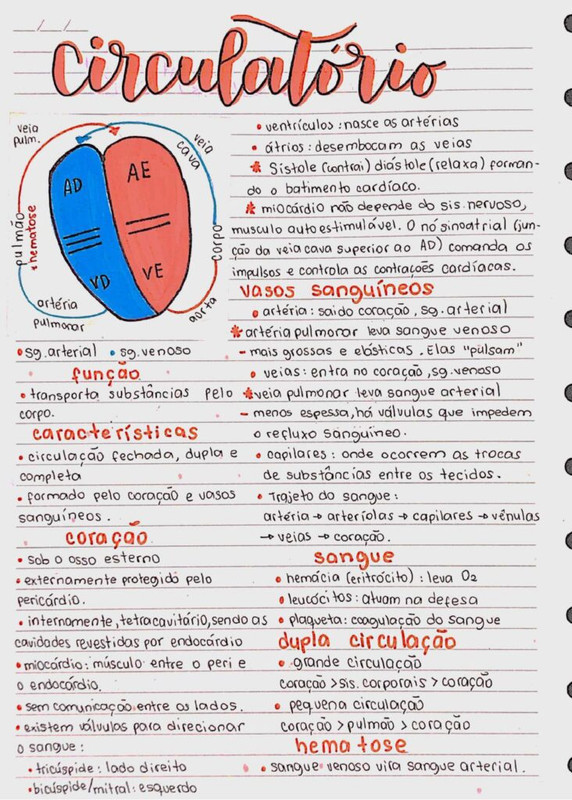 circulatório
veia
pulm.
veia
cava
AD
AE
VD
VE
pulmão
*hematose
corpo
artéria
pulmonar
aorta
• sg. arterial • sg. venoso
função
• transporta substâncias pelo
corpo.
características
• circulação fechada, dupla e
completa
• formado pelo coração e vasos
sanguíneos.
coração
• sob o osso esterno
• externamente protegido pelo
pericárdio.
• internamente, tetracavitário, sendo as
cavidades revestidas por endocárdio
• miocárdio: músculo entre o peri e
o endocárdio.
• sem comunicação entre os lados.
• existem válvulas para direcionar
o sangue:
• tricúspide: lado direito
• bicúspide/mitral: esquerdo
• ventrículos: nasce as artérias
• átrios: desembocam as veias
* Sístole (contrai) diástole (relaxa) forman-
do o batimento cardíaco.
* miocárdio não depende do sis. nervoso,
musculo auto estimulável. O nó sinoatrial (jun-
ção da veia cava superior ao AD) comanda os
impulsos e controla as contrações cardíacas.
vasos sanguíneos
• artéria: sai do coração, sg. arterial
* artéria pulmonar leva sangue venoso
- mais grossas e elásticas. Elas "pulsam"
• veias: entra no coração, sg. venoso
* veia pulmonar leva sangue arterial
- menos espessa, há válvulas que impedem
o refluxo sanguíneo.
• capilares: onde ocorrem as trocas
de substâncias entre os tecidos.
• Trajeto do sangue:
artéria → arteríolas → capilares → vênulas
→ veias → coração.
sangue
• hemácia (eritrócito): leva O2
• leucócitos: atuam na defesa
• plaqueta: coagulação do sangue
dupla circulação
• grande circulação
coração > sis. corporais > coração
• pequena circulação
coração > pulmão > coração
hematose
• sangue venoso vira sangue arterial.